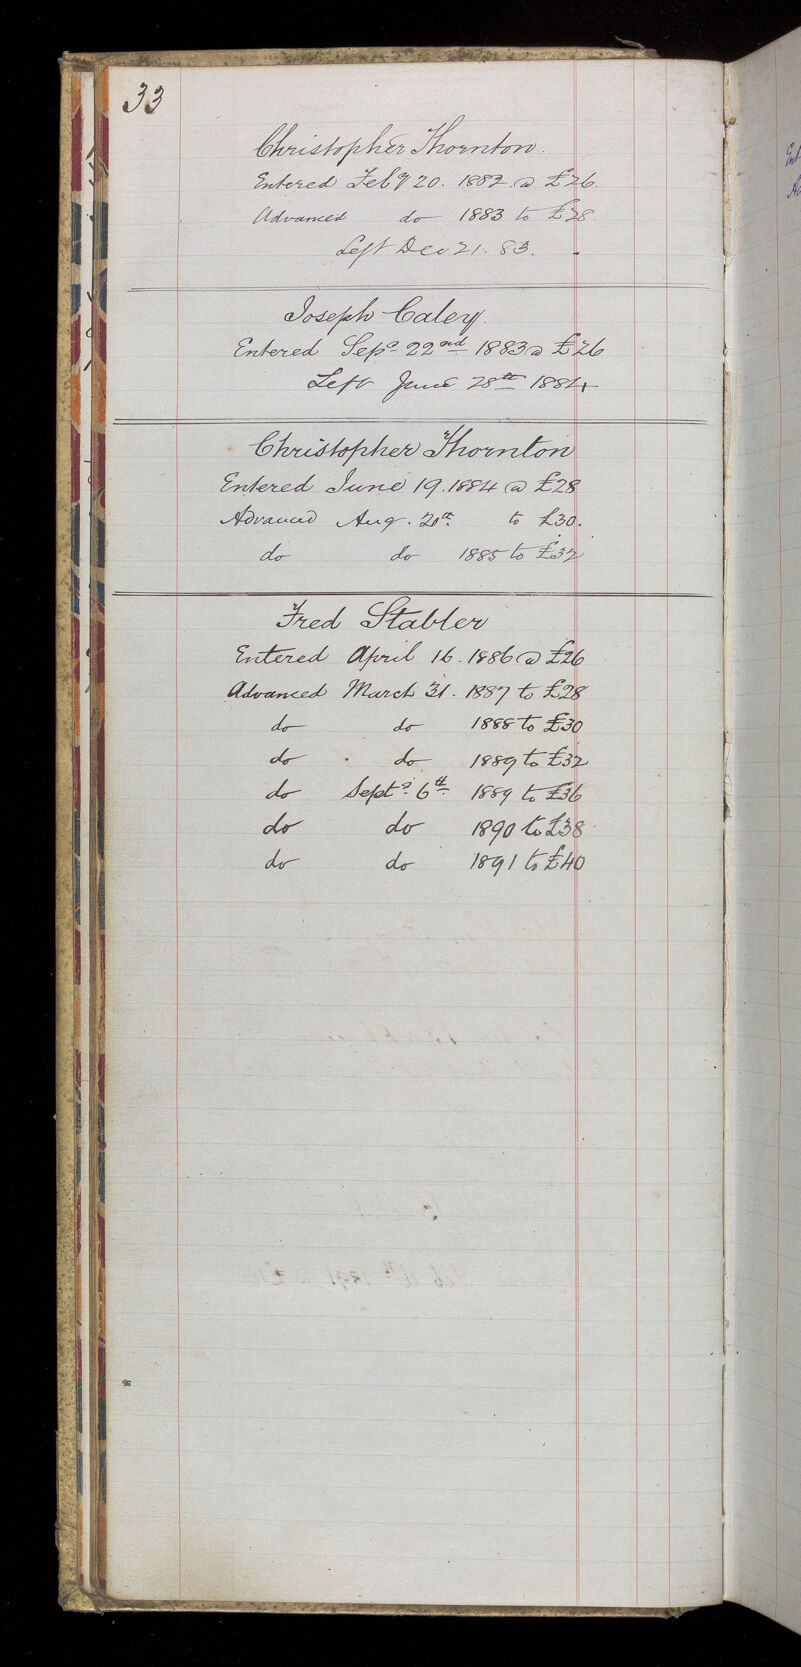 33
Christopher Thornton.
Entered Feby 20. 1882. @ £26.
Advanced do 1883 to £28.
Left Dec 21. 83.
Joseph Caley.
Entered Sepr 22nd 1883 @ £26
Left June 28th 1884
Christopher Thornton
Entered June 19. 1884 @ £28
Advanced Aug. 20th to £30.
do do 1885 to £32
Fred Stabler
Entered April 16. 1886 @ £26
Advanced March 31. 1887 to £28
do do 1888 to £30
do do 1889 to £32
do Septr 6th 1889 to £36
do do 1890 to £38
do do 1891 to £40
Ent